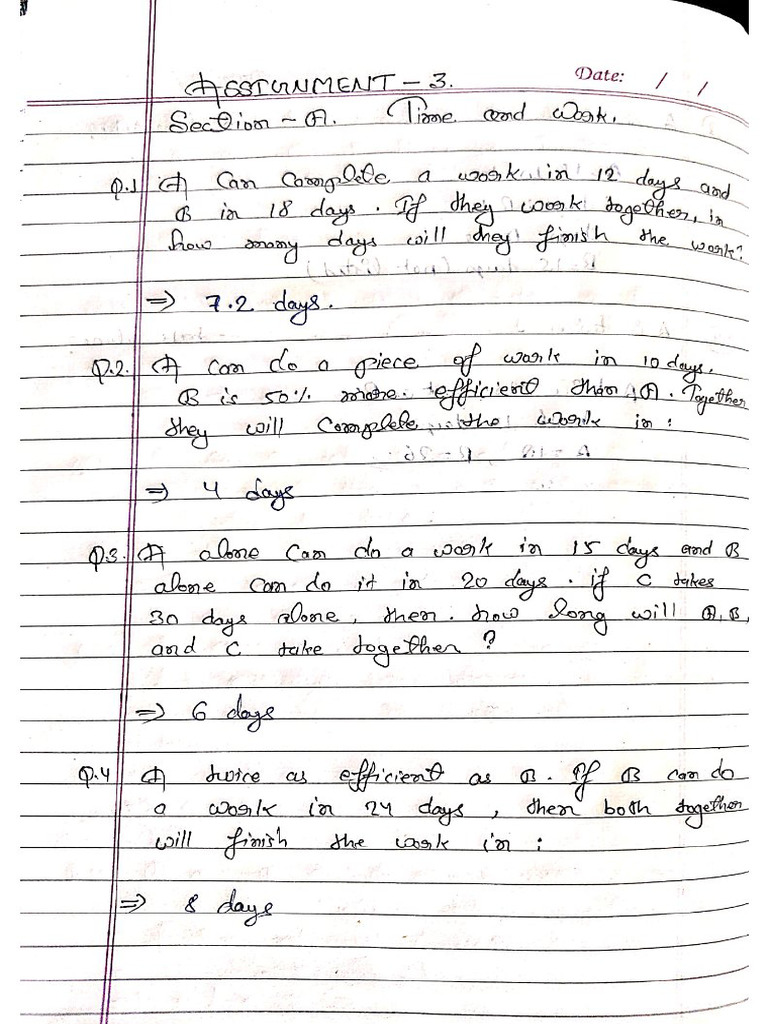 Date: / /
ASSIGNMENT - 3.
Section - A. Time and Work.
Q.1 A Can Complete a work in 12 days and
B in 18 days. If they work together, in
how many days will they finish the work?
⇒ 7.2 days.
Q.2. A can do a piece of work in 10 days.
B is 50% more efficient than A. Together
they will Complete the work in :
⇒ 4 days
Q.3 A alone Can do a work in 15 days and B
alone can do it in 20 days. if C takes
30 days alone, then how long will A, B,
and C take together ?
⇒ 6 days
Q.4 A twice as efficient as B. If B can do
a work in 24 days, then both together
will finish the work in :
⇒ 8 days